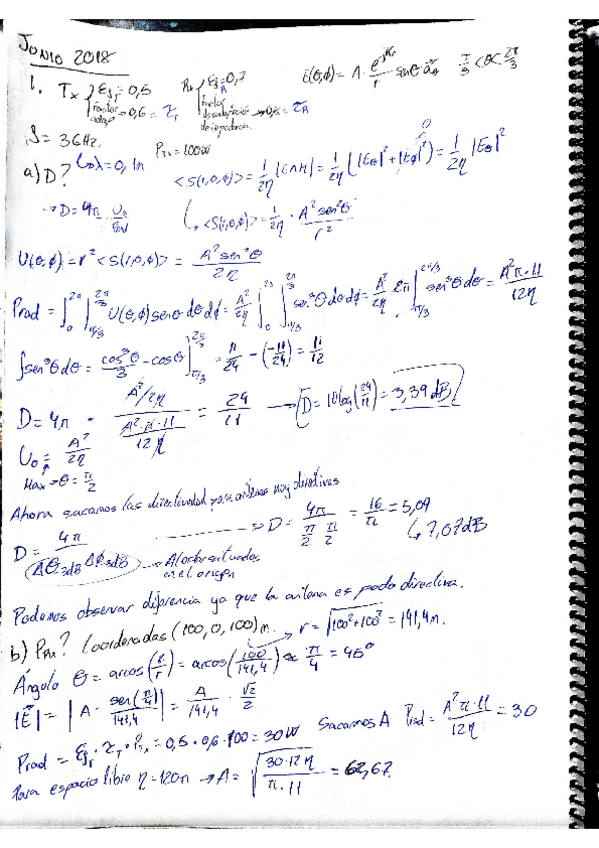 JUNIO 2018
1. Tx { ξr = 0,5 Rx { ξR = 0,7 E(θ,φ) = A · e^jKr / r senθ âθ π/3 < θ < 2π/3
Factor = 0,6 = τr Factor = τR
f = 3GHz. PTx = 100W
↳ λ = 0,1m
a) D? <S(r,θ,φ)> = 1/2η |E∧H| = 1/2η (|Eθ|² + |Eφ|²) = 1/2η |Eθ|² 0
→ D = 4π · U0/Prad ↳ <S(r,θ,φ)> = 1/2η · A² sen²θ / r²
U(θ,φ) = r² <S(r,θ,φ)> = A² sen²θ / 2η
Prad = ∫0^2π ∫π/3^2π/3 U(θ,φ) senθ dθ dφ = A²/2η ∫0^2π ∫π/3^2π/3 sen³θ dθ dφ = A²/2η 2π ∫π/3^2π/3 sen³θ dθ = A² π · 11 / 12η
∫sen³θ dθ = cos³θ/3 - cosθ |π/3^2π/3 = 11/24 - (-11/24) = 11/12
D = 4π · A²/2η / A²·π·11/12η = 24/11 → D = 10log(24/11) = 3,39 dB
U0 = A²/2η
Max → θ = π/2
Ahora sacamos las directividad para antenas muy directivas
D = 4π / Δθ-3dB Δφ-3dB → D = 4π / π/2 π/2 = 16/π = 5,09
→ Al estar situados en el origen ↳ 7,07dB
Podemos observar diferencia ya que la antena es poco directiva.
b) PRx? Coordenadas (100, 0, 100) m. → r = √100² + 100² = 141,4m.
Ángulo θ = arcos(z/r) = arcos(100/141,4) ≈ π/4 = 45º
|E| = |A · sen(π/4)/141,4| = A/141,4 · √2/2
Prad = ξr · τr · PTx = 0,5 · 0,6 · 100 = 30W Sacamos A Prad = A² π · 11 / 12η = 30
Para espacio libre η = 120π → A = √30·12η / π·11 = 62,67.